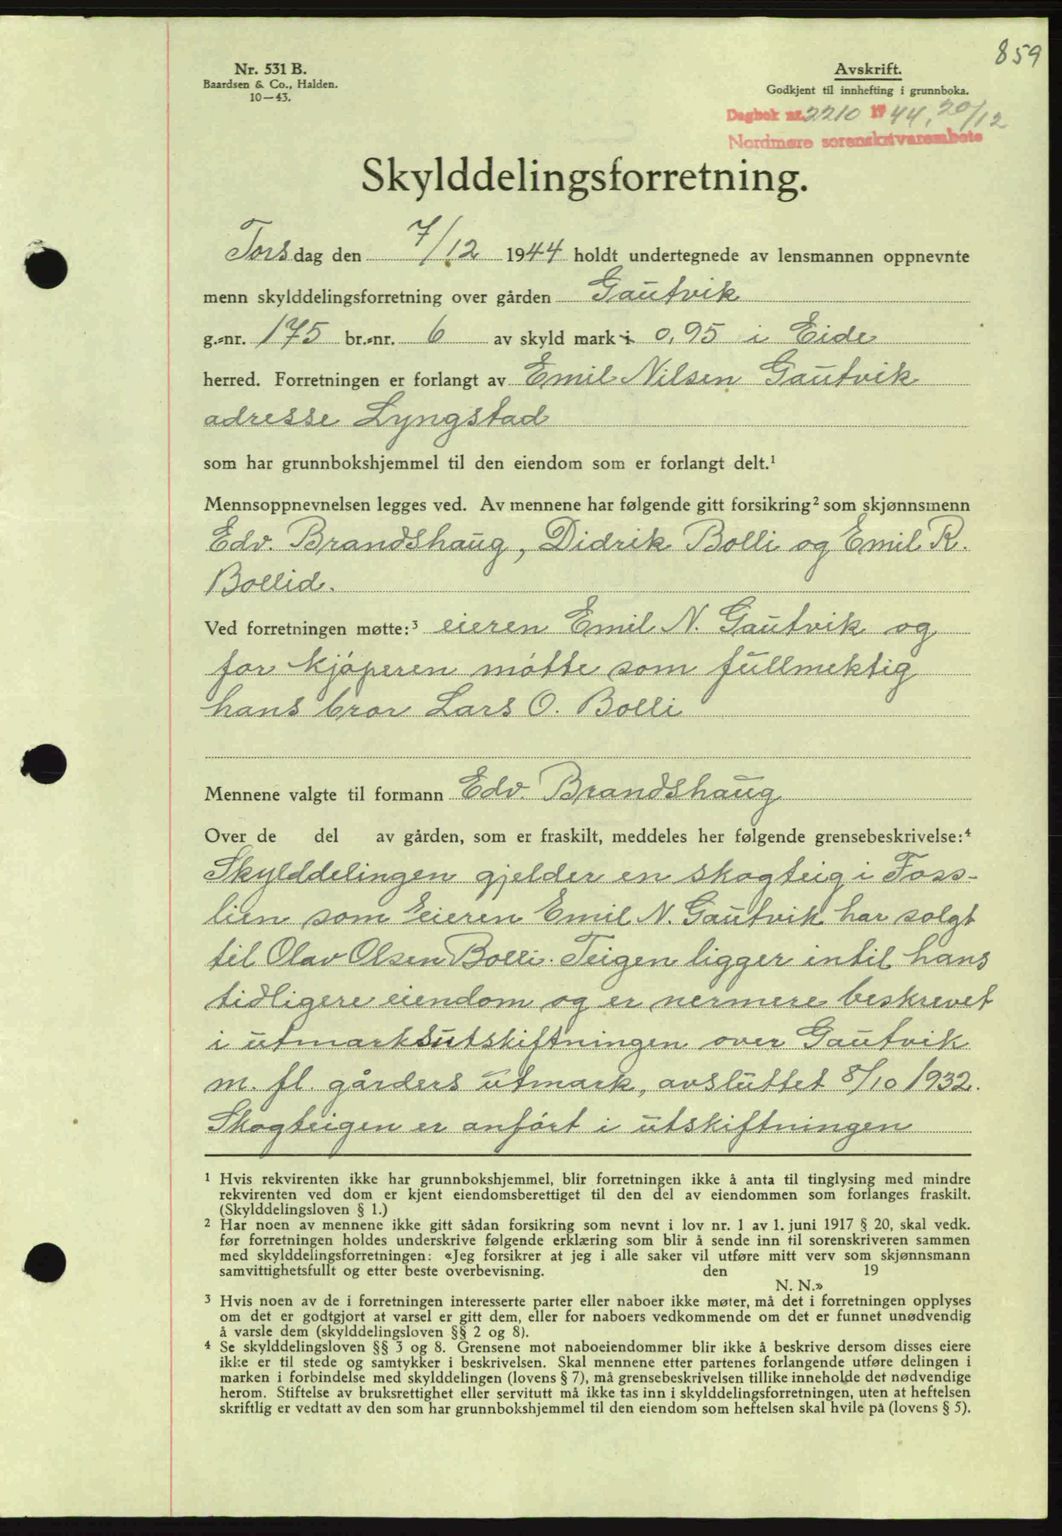 859
Nr. 531 B.
Baardsen & Co., Halden.
10—43.
Avskrift.
Godkjent til innhefting i grunnboka.
Dagbok nr. 2210 19 44, 20/12
Nordmøre sorenskrivarembete
Skylddelingsforretning.
Torsdag den 7/12 1944 holdt undertegnede av lensmannen oppnevnte
menn skylddelingsforretning over gården Gautvik
g.-nr. 175 br.-nr. 6 av skyld mark i 0,95 i Eide
herred. Forretningen er forlangt av Emil Nilsen Gautvik
adresse Lyngstad
som har grunnbokshjemmel til den eiendom som er forlangt delt.¹
Mennsoppnevnelsen legges ved. Av mennene har følgende gitt forsikring² som skjønnsmenn
Edv. Brandshaug, Didrik Bolli og Emil R.
Bollid.
Ved forretningen møtte:³ eieren Emil N. Gautvik og
for kjøperen møtte som fullmektig
hans bror Lars O. Bolli
Mennene valgte til formann Edv. Brandshaug
Over de del av gården, som er fraskilt, meddeles her følgende grensebeskrivelse:⁴
Skylddelingen gjelder en skogteig i Foss-
lien som Eieren Emil N. Gautvik har solgt
til Olav Olsen Bolli. Teigen ligger intil hans
tidligere eiendom og er nermere beskrevet
i utmarksutskiftningen over Gautvik
m. fl. gårders utmark, avsluttet 8/10 1932.
Skogteigen er anført i utskiftningen
¹ Hvis rekvirenten ikke har grunnbokshjemmel, blir forretningen ikke å anta til tinglysing med mindre
rekvirenten ved dom er kjent eiendomsberettiget til den del av eiendommen som forlanges fraskilt.
(Skylddelingsloven § 1.)
² Har noen av mennene ikke gitt sådan forsikring som nevnt i lov nr. 1 av 1. juni 1917 § 20, skal vedk.
før forretningen holdes underskrive følgende erklæring som blir å sende inn til sorenskriveren sammen
med skylddelingsforretningen: «Jeg forsikrer at jeg i alle saker vil utføre mitt verv som skjønnsmann
samvittighetsfullt og etter beste overbevisning. den 19
N. N.»
³ Hvis noen av de i forretningen interesserte parter eller naboer ikke møter, må det i forretningen opplyses
om det er godtgjort at varsel er gitt dem, eller for naboers vedkommende om det er funnet unødvendig
å varsle dem (skylddelingsloven §§ 2 og 8).
⁴ Se skylddelingsloven §§ 3 og 8. Grensene mot naboeiendommer blir ikke å beskrive dersom disses eiere
ikke er til stede og samtykker i beskrivelsen. Skal mennene etter partenes forlangende utføre delingen i
marken i forbindelse med skylddelingen (lovens § 7), må grensebeskrivelsen tillike inneholde det nødvendige
herom. Stiftelse av bruksrettighet eller servitutt må ikke tas inn i skylddelingsforretningen, uten at heftelsen
skriftlig er vedtatt av den som har grunnbokshjemmel til den eiendom som heftelsen skal hvile på (lovens § 5).